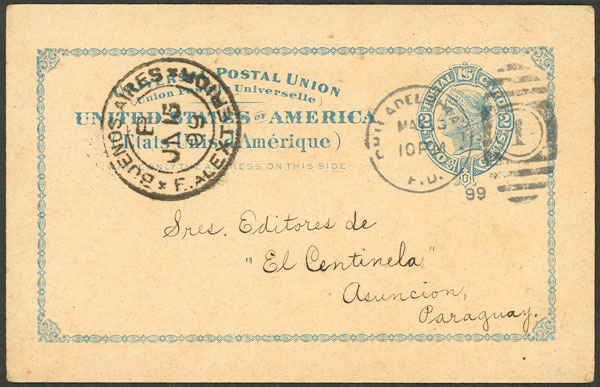 POSTAL UNION
(Union Postale Universelle)
UNITED STATES OF AMERICA.
(États-Unis d'Amérique)
ONLY THE ADDRESS ON THIS SIDE
BUENOS AIRES
99
PHILADEL
10 PM
P.D.
99
POSTAL CARD
TWO CENTS
1
Sres. Editores de
"El Centinela"
Asuncion,
Paraguay.